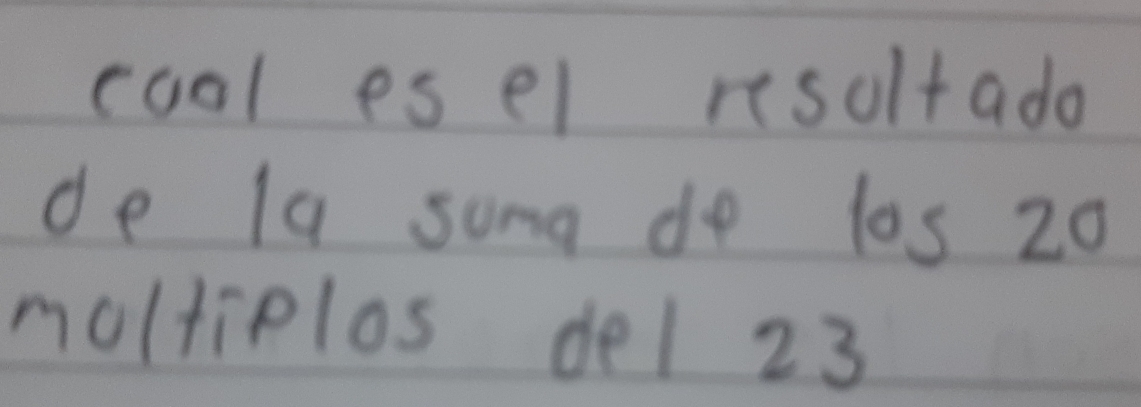 cual es el resultado
de la suma de los 20
multiplos del 23